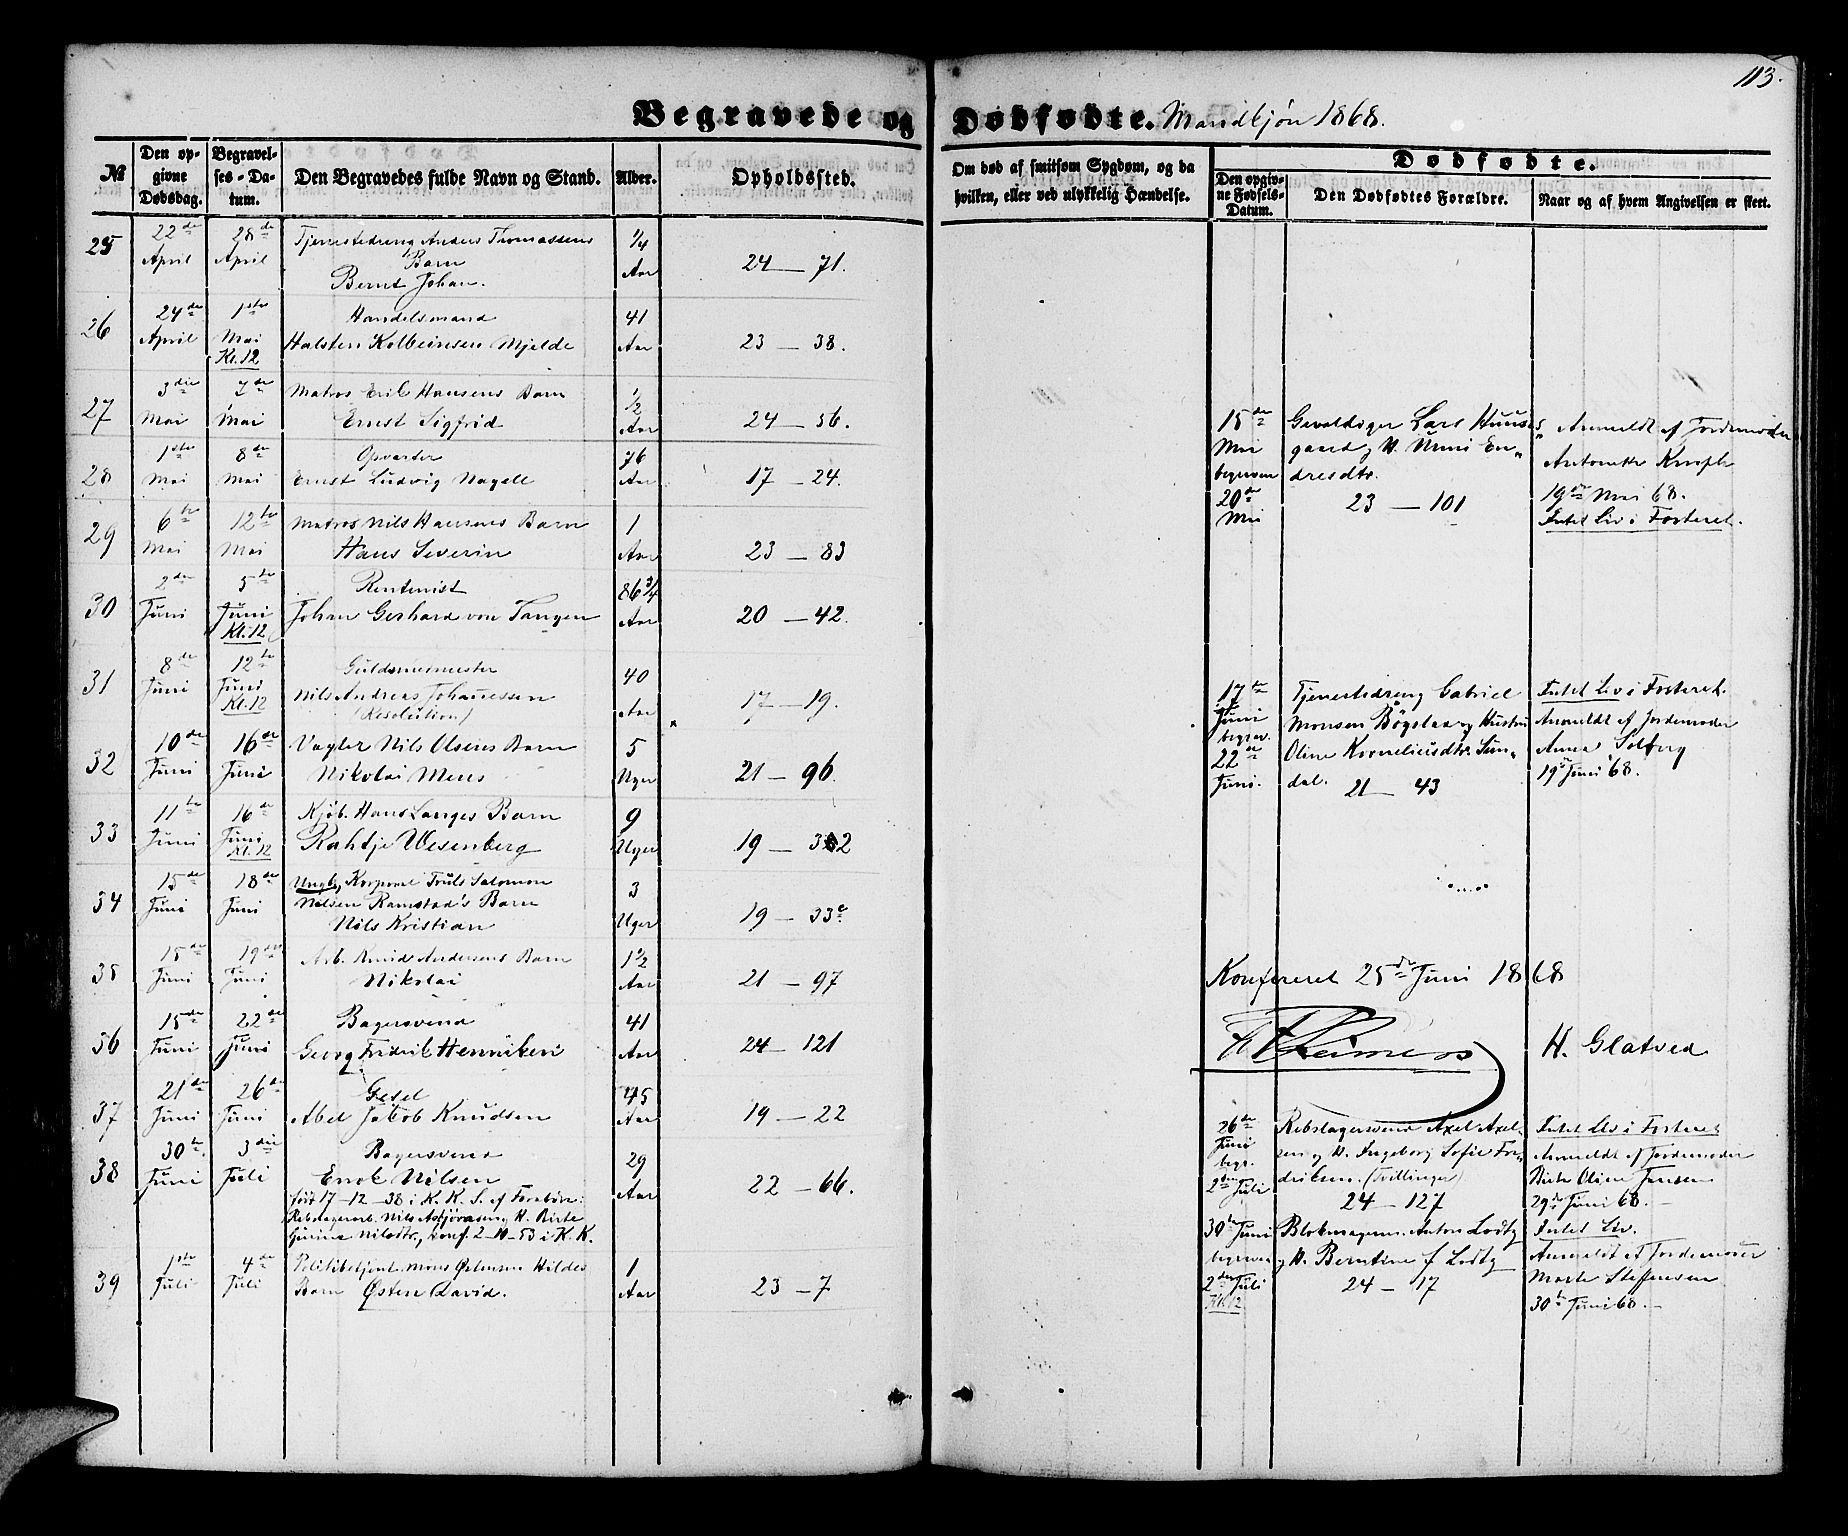 113.
Begravede og Dødfødte. Mandkjøn 1868.
№
Den opgivne Dødsdag.
Begravelses-Datum.
Den Begravedes fulde Navn og Stand.
Alder.
Opholdssted.
Om død af smitsom Sygdom, og da hvilken, eller ved ulykkelig Hændelse.
Dødfødte.
Den opgivne Fødsels-Datum.
Den Dødfødtes Forældre.
Naar og af hvem Angivelsen er skeet.
25 22de April 28de April Tjenestedreng Anders Thomassens Barn Bernt Johan. 1/4 Aar 24 — 71.
26 24de April 1ste Mai Kl. 12 Handelsmand Halsten Kolbeinsen Mjelde 41 Aar 23 — 38.
27 3die Mai 7de Mai Matros Erik Hansens Barn Ernst Sigfrid 1/2 Aar 24 — 56.
28 1ste Mai 8de Mai Opvarter Ernst Ludvig Nagell 76 Aar 17 — 24.
29 6te Mai 12te Mai Matros Nils Hansens Barn Hans Severin 1 Aar 23 — 83
30 2den Juni 5te Juni Kl. 12 Rentenist Johan Gerhard von Tangen 86 3/4 Aar 20 — 42.
31 8de Juni 12te Juni Kl. 12 Nils Andreas Johannessen (Resolution) 40 Aar 17 — 19.
32 10de Juni 16de Juni Vægter Nils Olsens Barn Nikolai Mens 5 Uger 21 — 96.
33 11te Juni 16de Juni Kl. 12 Kjøb. Hans Langes Barn Rahtje Wesenberg 9 Uger 19 — 32
34 15de Juni 18de Juni Ungk. Korporal Truls Salomon Nilsen Ramstad's Barn Nils Kristian 3 Uger 19 — 33c
35 15de Juni 19de Juni Arb. Knud Andersens Barn Nikolai 1 1/2 Aar 21 — 97
36 15de Juni 22de Juni Bagersvend Georg Fridrik Henriksen 41 Aar 24 — 121
37 21de Juni 26de Juni Gesel Abel Jakob Knudsen 45 Aar 19 — 22
38 30te Juni 3die Juli Bagersvend Enok Nilsen 29 Aar 22 — 66.
født 17-12-38 i K. K. S. af Forældre:
Rebslagerarb. Nils Asbjørnsen og H. Birte
Gurine Nilsdtr., konf. 2-10-53 i K. K.
39 1ste Juli 4de Juli Politibetjent Mons Østensen Hildes Barn Østen David. 1 Aar 23 — 7
15de Mai begraven 20de Mai
Gevaldiger Lars Huus
gaard og H. Unni En
dresdtr.
23 — 101
Anmeldt af Jordemoder
Antonette Knoph
19de Mai 68.
Intet Liv i Fosteret.
17te Juni begrav. 22de Juni.
Tjenestedreng Gabriel
Monsen Bøgstaa og Hustru
Oline Korneliusdtr. Sun
dal. 21 — 43
Intet Liv i Fosteret.
Anmeldt af Jordemoder
Anna Solberg
19de Juni 68.
Konfereret 25de Juni 1868
H. Glatved
26de Juni begr. 2den Juli
Rebslagersvend Axel Axel
sen og H. Ingeborg Sofie Fre
driksen. (Tvillinger)
24 — 127
Intet Liv i Fosteret
Anmeldt af Jordemoder
Birte Oline Jansen
29de Juni 68.
30te Juni begraven 2den Juli Kl. 12
Blokmagersv. Anton Lodtz
og H. Berntine f. Lodtz
24 — 17
Intet Liv.
Anmeldt af Jordemoder
Marte Steffensen
30te Juni 68.